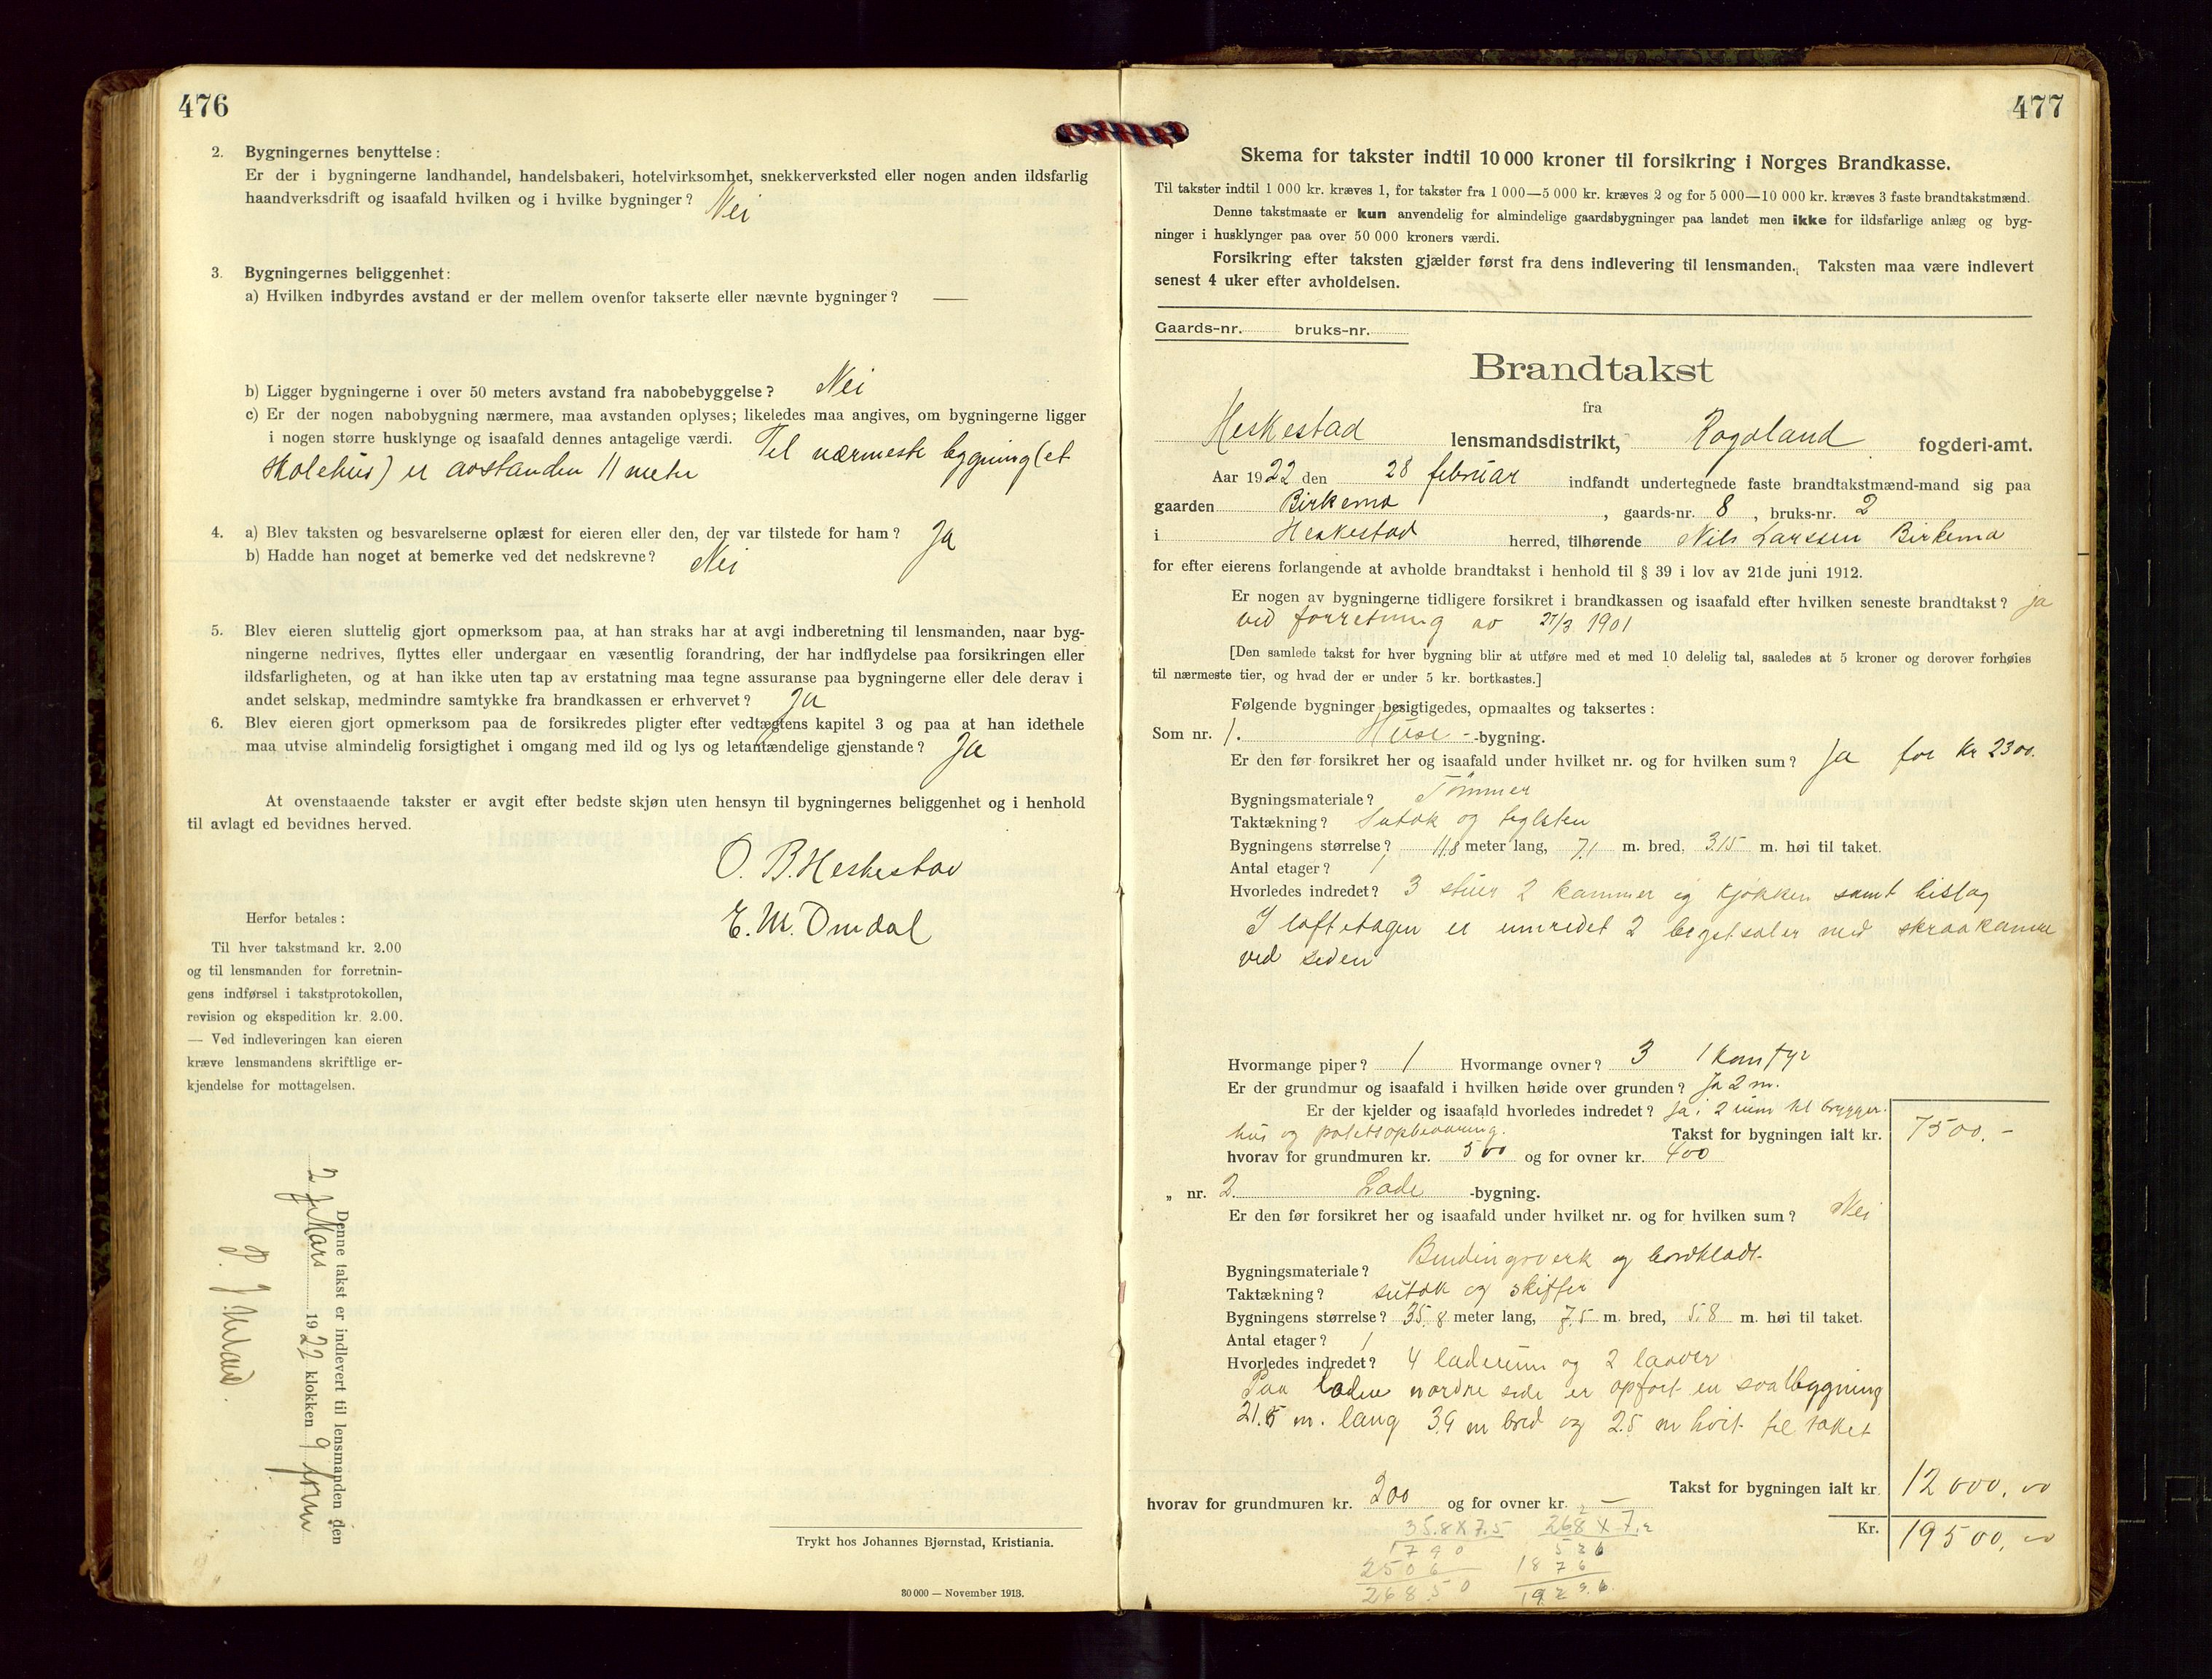 476
2. Bygningernes benyttelse:
Er der i bygningerne landhandel, handelsbakeri, hotelvirksomhet, snekkerverksted eller nogen anden ildsfarlig
haandverksdrift og isaafald hvilken og i hvilke bygninger? Nei
3. Bygningernes beliggenhet:
a) Hvilken indbyrdes avstand er der mellem ovenfor takserte eller nævnte bygninger? —
b) Ligger bygningerne i over 50 meters avstand fra nabobebyggelse? Nei
c) Er der nogen nabobygning nærmere, maa avstanden oplyses; likeledes maa angives, om bygningerne ligger
i nogen større husklynge og isaafald dennes antagelige værdi. Til nærmeste bygning (et
skolehus) er avstanden 11 meter
4. a) Blev taksten og besvarelserne oplæst for eieren eller den, der var tilstede for ham? Ja
b) Hadde han noget at bemerke ved det nedskrevne? Nei
5. Blev eieren sluttelig gjort opmerksom paa, at han straks har at avgi indberetning til lensmanden, naar byg-
ningerne nedrives, flyttes eller undergaar en væsentlig forandring, der har indflydelse paa forsikringen eller
ildsfarligheten, og at han ikke uten tap av erstatning maa tegne assuranse paa bygningerne eller dele derav i
andet selskap, medmindre samtykke fra brandkassen er erhvervet? Ja
6. Blev eieren gjort opmerksom paa de forsikredes pligter efter vedtægtens kapitel 3 og paa at han idethele
maa utvise almindelig forsigtighet i omgang med ild og lys og letantændelige gjenstande? Ja
At ovenstaaende takster er avgit efter bedste skjøn uten hensyn til bygningernes beliggenhet og i henhold
til avlagt ed bevidnes herved.
O. B. Heskestad
E. M. Omdal
Herfor betales:
Til hver takstmand kr. 2.00
og til lensmanden for forretnin-
gens indførsel i takstprotokollen,
revision og ekspedition kr. 2.00.
— Ved indleveringen kan eieren
kræve lensmandens skriftlige er-
kjendelse for mottagelsen.
Denne takst er indlevert til lensmanden den
2 Mars 1922 klokken 9 form
Trykt hos Johannes Bjørnstad, Kristiania.
30 000 — November 1913.
477
Skema for takster indtil 10 000 kroner til forsikring i Norges Brandkasse.
Til takster indtil 1 000 kr. kræves 1, for takster fra 1 000—5 000 kr. kræves 2 og for 5 000—10 000 kr. kræves 3 faste brandtakstmænd.
Denne takstmaate er kun anvendelig for almindelige gaardsbygninger paa landet men ikke for ildsfarlige anlæg og byg-
ninger i husklynger paa over 50 000 kroners værdi.
Forsikring efter taksten gjælder først fra dens indlevering til lensmanden. Taksten maa være indlevert
senest 4 uker efter avholdelsen.
Gaards-nr. bruks-nr.
Brandtakst
fra
Heskestad lensmandsdistrikt, Rogaland fogderi-amt.
Aar 1922 den 28 februar indfandt undertegnede faste brandtakstmænd-mand sig paa
gaarden Birkemo, gaards-nr. 8, bruks-nr. 2
i Heskestad herred, tilhørende Nils Larssen Birkemo
for efter eierens forlangende at avholde brandtakst i henhold til § 39 i lov av 21de juni 1912.
Er nogen av bygningerne tidligere forsikret i brandkassen og isaafald efter hvilken seneste brandtakst? ja
ved forretning av 27/3 1901
[Den samlede takst for hver bygning blir at utføre med et med 10 delelig tal, saaledes at 5 kroner og derover forhøies
til nærmeste tier, og hvad der er under 5 kr. bortkastes.]
Følgende bygninger besigtigedes, opmaaltes og taksertes:
Som nr. 1. Huse- -bygning.
Er den før forsikret her og isaafald under hvilket nr. og for hvilken sum? Ja for Kr 2300.
Bygningsmateriale? Tømmer
Taktækning? Sutak og teglsten
Bygningens størrelse? 11,8 meter lang, 7,1 m. bred, 3,15 m. høi til taket.
Antal etager? 1
Hvorledes indredet? 3 stuer 2 kammer og kjøkken samt bislag
I loftetagen er innredet 2 skraakamre
ved siden
Hvormange piper? 1 Hvormange ovner? 3 1 komfyr
Er der grundmur og isaafald i hvilken høide over grunden? Ja 2 m.
Er der kjelder og isaafald hvorledes indredet? Ja i 2 rum til brygger-
hus og potetsopbevaring. Takst for bygningen ialt kr. 7500.-
hvorav for grundmuren kr. 500 og for ovner kr. 400
„ nr. 2. Lade -bygning.
Er den før forsikret her og isaafald under hvilket nr. og for hvilken sum? Nei
Bygningsmateriale? Bindingsverk og bordkladt
Taktækning? sutak og skiffer
Bygningens størrelse? 35,8 meter lang, 7,5 m. bred, 5,8 m. høi til taket.
Antal etager? 1
Hvorledes indredet? 4 laderum og 2 laaver
Paa laden nordre side er opført en svalbygning
21.5 m. lang 3,9 m bred og 2.5 m høit til taket
Takst for bygningen ialt kr. 12 000,00
hvorav for grundmuren kr. 200 og for ovner kr. —
Kr. 19500,00
35.8 X 7.5 268 X 7.2
1790 536
2506 1876
26850